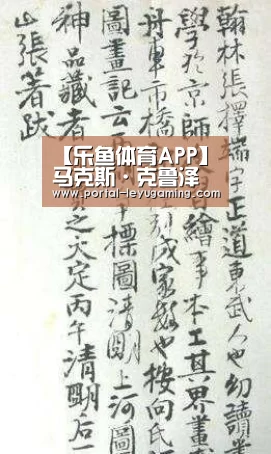 翰林張擇端字正道東武人也幼讀
學於京師習繪事本工其界畫
舟車市橋別成家數也按向氏
圖畫記云標圖清明上河圖
神品藏者之大定丙午清明后一
山張著跋
【乐鱼体育APP】
马克斯·克鲁泽
www.portal-leyugaming.com